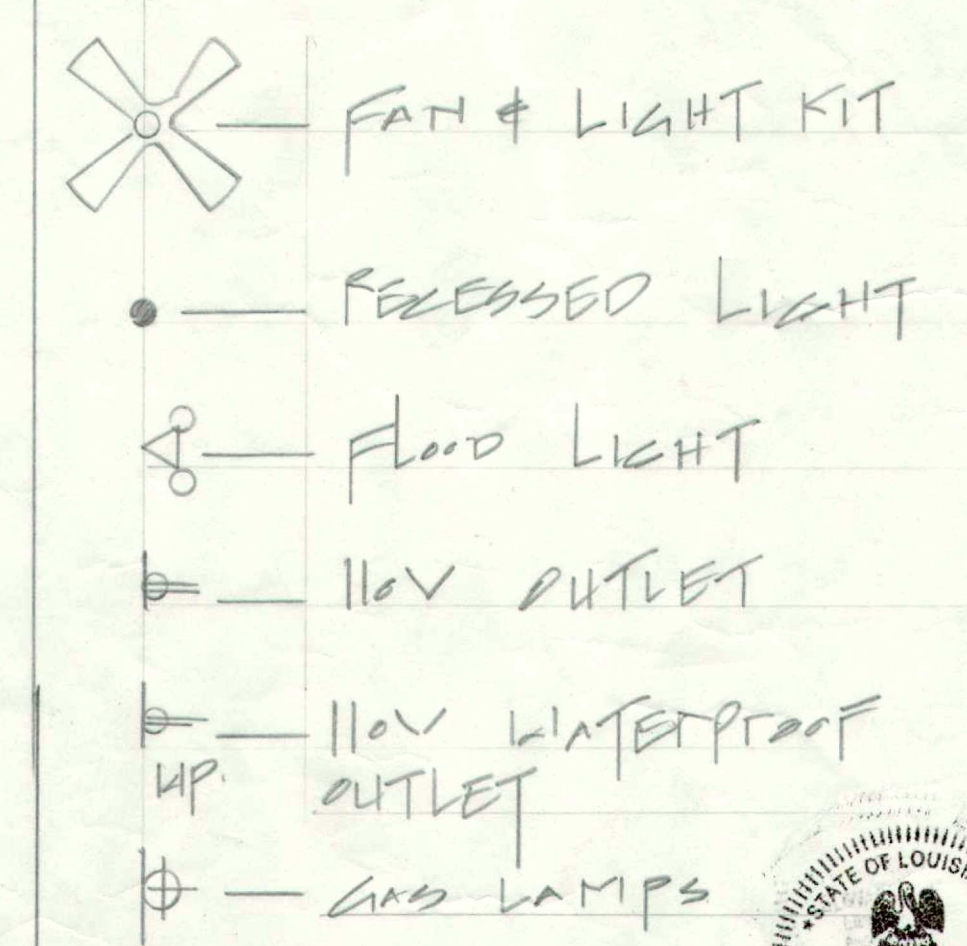 FAN & LIGHT KIT
RECESSED LIGHT
FLOOD LIGHT
110V OUTLET
110V WATERPROOF
WP. OUTLET
GAS LAMPS
★STATE OF LOUIS